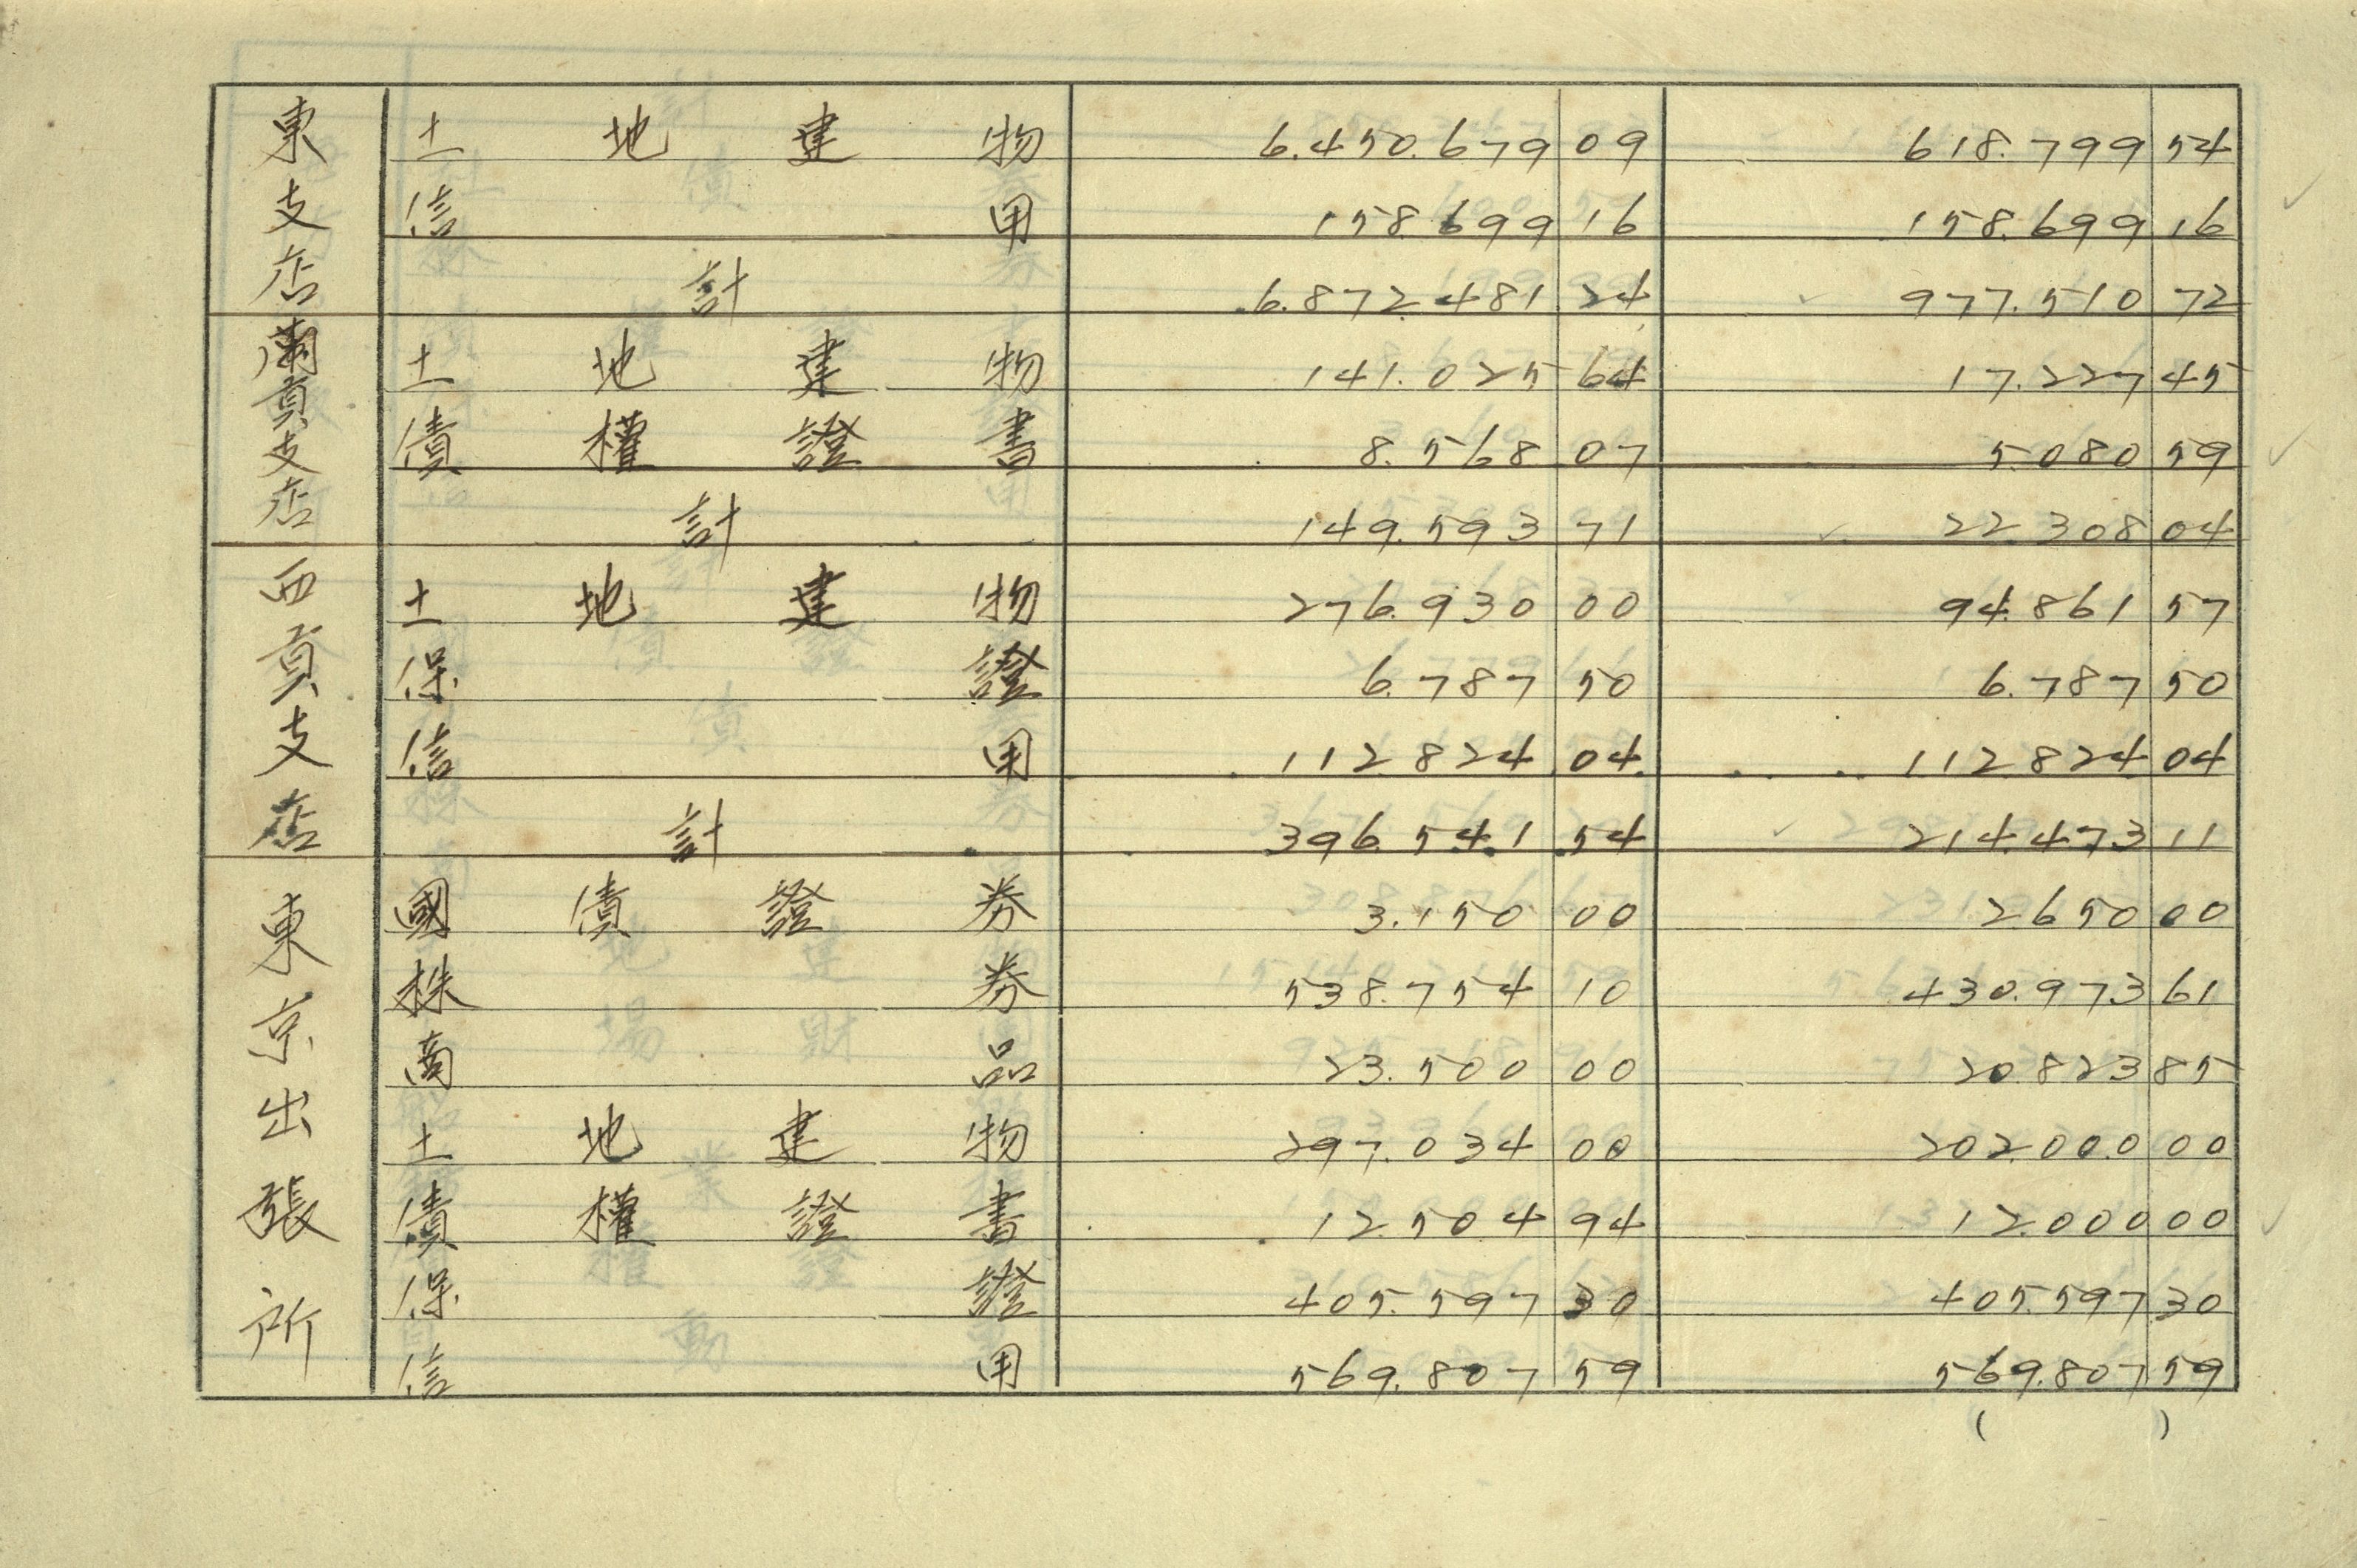 東支店
土地建物 6.450.679 09 618.799 54
信用 158.699 16 158.699 16
計 6.872.481 24 977.510 72
蘭貢支店
土地建物 141.025 64 17.227 45
債權證書 8.568 07 5.080 59
計 149.593 71 22.308 04
西貢支店
土地建物 276.930 00 94.861 57
保證 6.787 50 6.787 50
信用 112.824 04 112.824 04
計 396.541 54 214.473 11
東京出張所
國債證券 3.150 00 2.650 00
株券 538.754 10 430.973 61
商品 23.500 00 20.823 85
土地建物 297.034 00 202.000 00
債權證書 12.504 94 12.000 00
保證 405.597 30 405.597 30
信用 569.807 59 569.807 59
( )